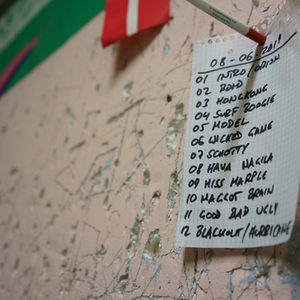 08-06-2011
01 INTRO/ORION
02 ROAD
03 HONGKONG
04 SURF BOOGIE
05 MODEL
06 WICKED GAME
07 SCHOTTY
08 HAVA NAGILA
09 MISS MARPLE
10 MAGGOT BRAIN
11 GOOD BAD UGLY
12 BLACKOUT/HURRICANE